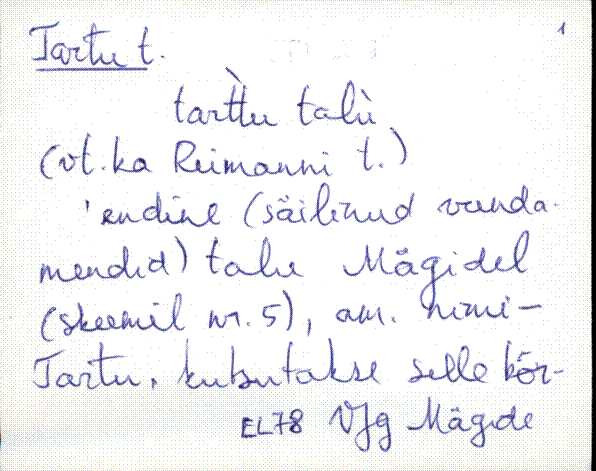 1
Tartu t.
tarttu talu
(vt. ka Reimanni t.)
'endine (säilinud vunda-
mendid) talu Mägidel
(skeemil nr. 5), am. nimi –
Tartu, kutsutakse selle kõr-
EL78 Vjg Mägede